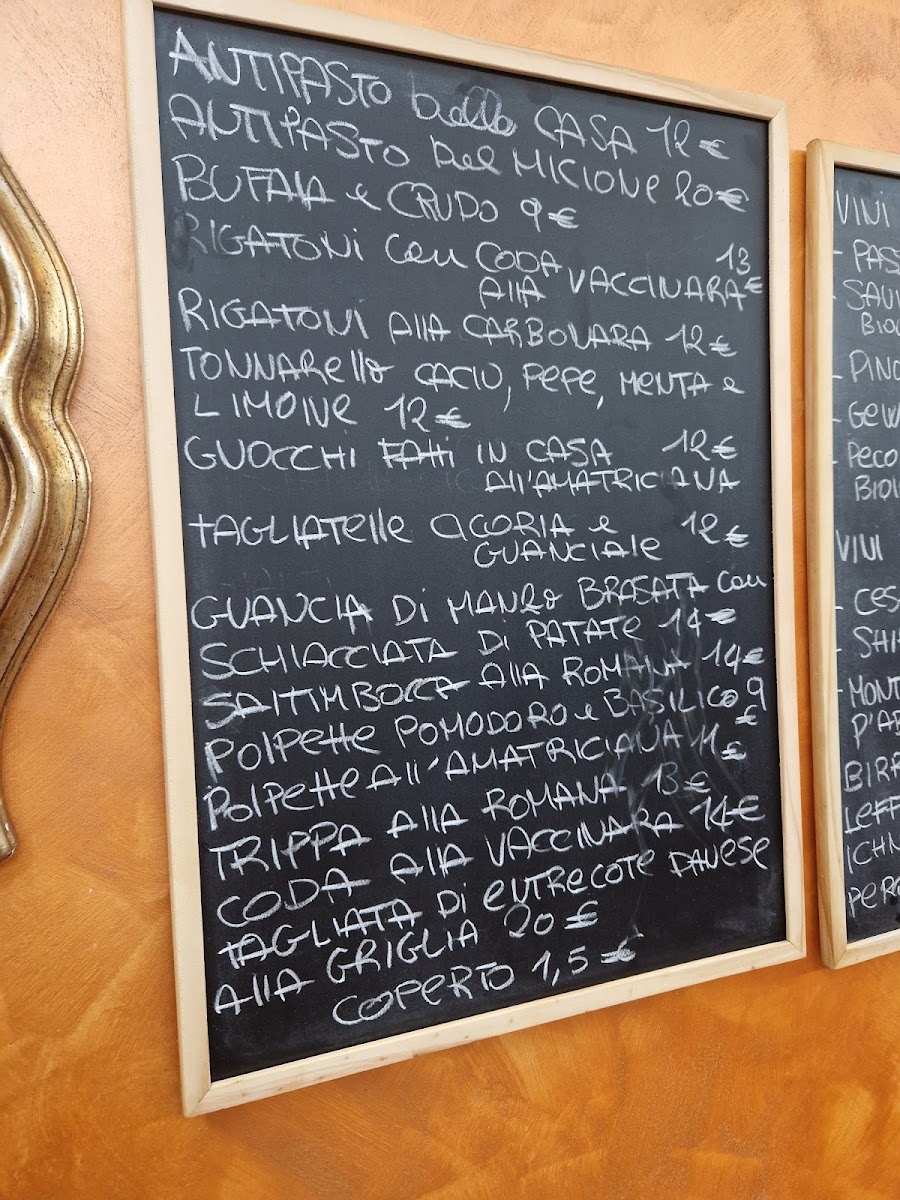 ANTIPASTO della CASA 12 €
ANTIPASTO del MICIONE 20 €
BUFALA e CRUDO 9 €
RIGATONI con CODA 13
alla VACCINARA €
RIGATONI alla CARBONARA 12 €
TONNARello CACIO, PePe, MENTA e
LIMONE 12 €
GNOCCHI Fatti IN CASA 12 €
All'AMATRICIANA
TAGLIATelle CICORIA e 12 €
GUANCIALe
GUANCIA DI MANZO BRASATA con
SCHIACCIATA DI PATATe 14 €
SALTIMBOCCA AllA ROMANA 14 €
POLPETTE POMODORO e BASILICO 9
€
POLPETTE All'AMATRICIANA 11 €
TRIPPA AllA ROMANA 13 €
CODA AllA VACCINARA 14 €
TAGLIATA DI eNTRECOTE DANESE
AllA GRIGLIA 20 €
COPERTO 1,5 €
VINI
- PAS
- SAUV
BIOL
- PINO
- GeW
- Peco
BIOL
VINI
- CES
- SHI
- MONT
D'AB
BIRR
LeFF
ICHN
PERO